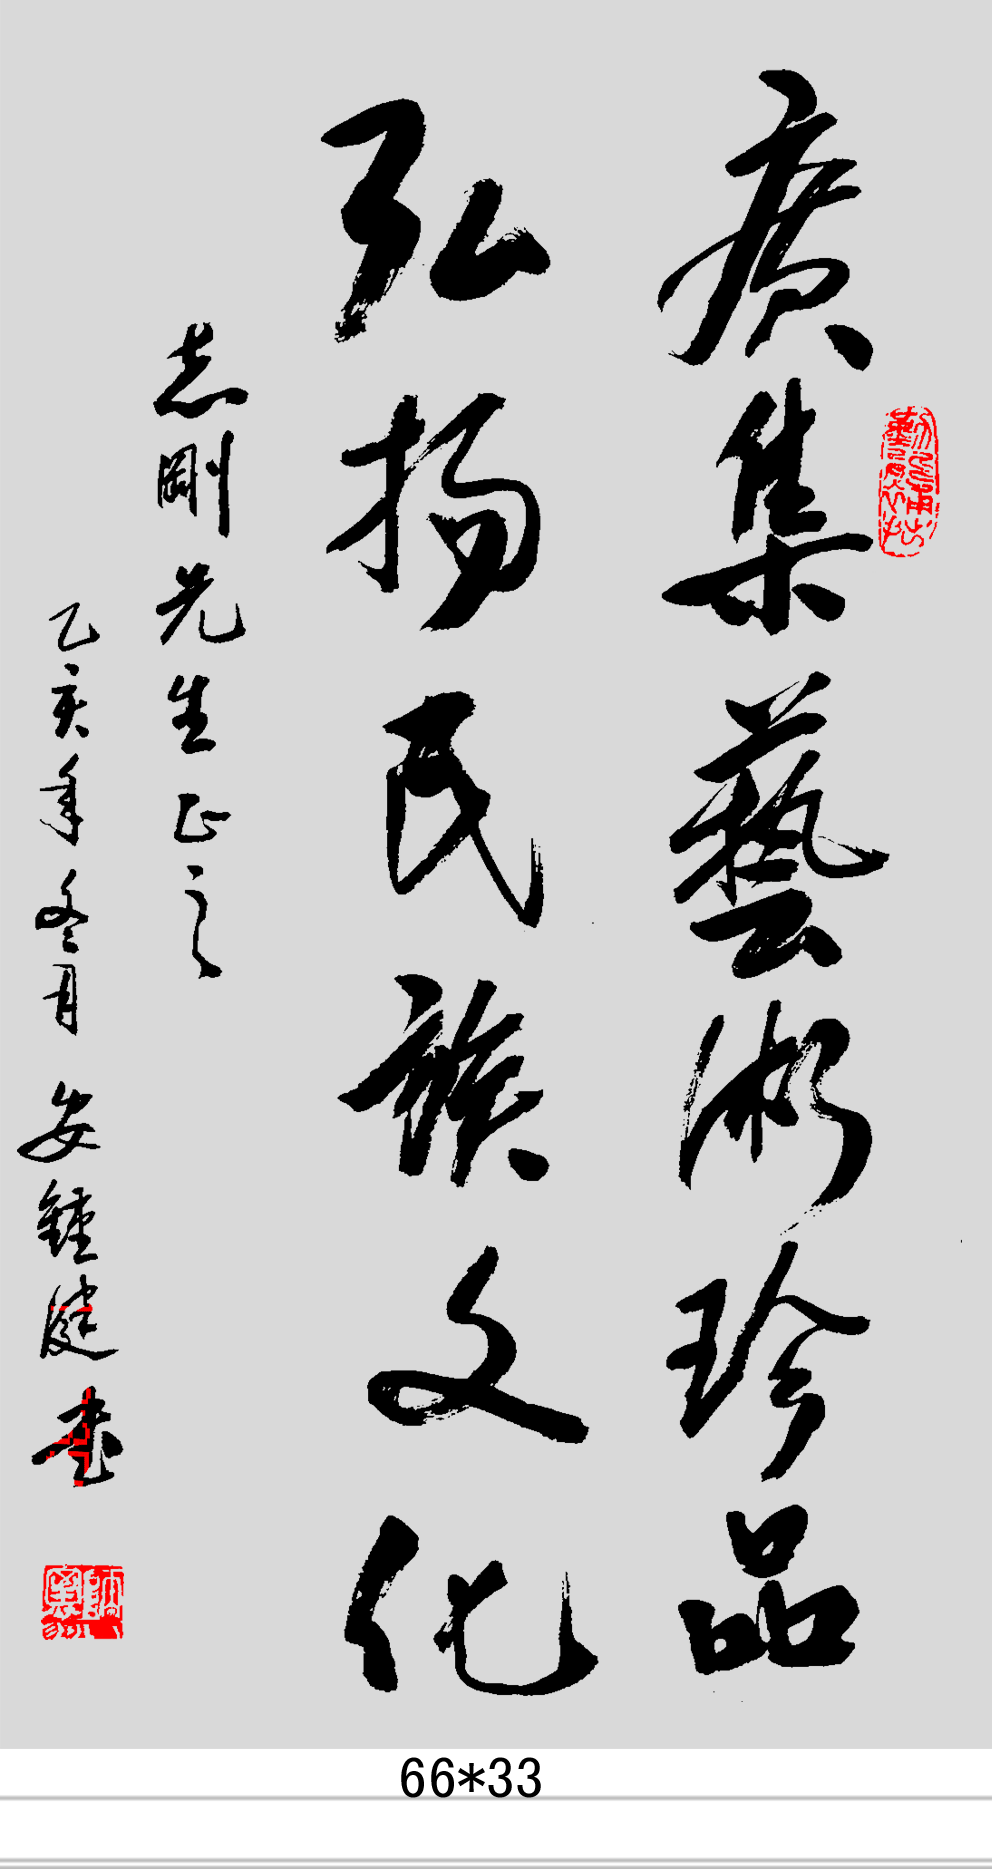 广集藝術珍品
弘扬民族文化
志剛先生正之
乙亥年冬月 安鍾健书
66*33